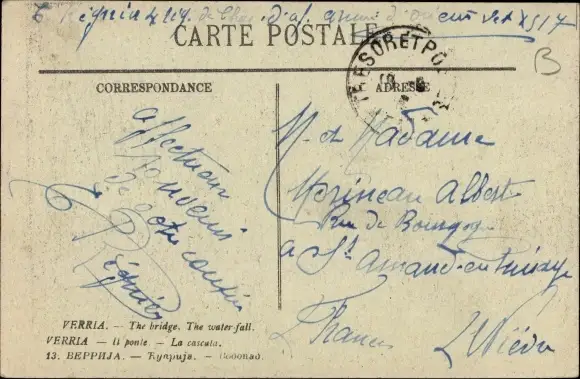 CARTE POSTALE
TRESOR ET POSTES
CORRESPONDANCE
ADRESSE
affectueux
souvenir
de votre cousin
Régnier
M. et Madame
Morineau Albert
Rue de Bourgogne
a St
Amand-en-Puisaye
France
Nièvre
VERRIA. — The bridge. The water-fall.
VERRIA — Il ponte — La cascata.
13. ВЕРРИЈА. — Ћуприја. — Водопад.
B